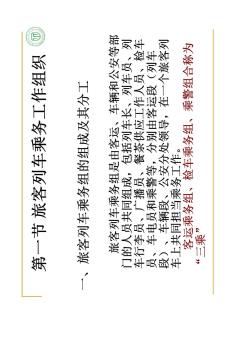 第一节 旅客列车乘务工作组织
一、旅客列车乘务组的组成及其分工
旅客列车乘务组是由客运、车辆和公安等部
门的人员共同组成，包括列车长、列车员、列
车行李员、广播员、餐茶供应工作人员、检车
员、车电员和乘警等，分别由客运段（列车
段）、车辆段、公安分处领导，在一个旅客列
车上共同担当乘务工作。
客运乘务组、检车乘务组、乘警组合称为
“三乘”